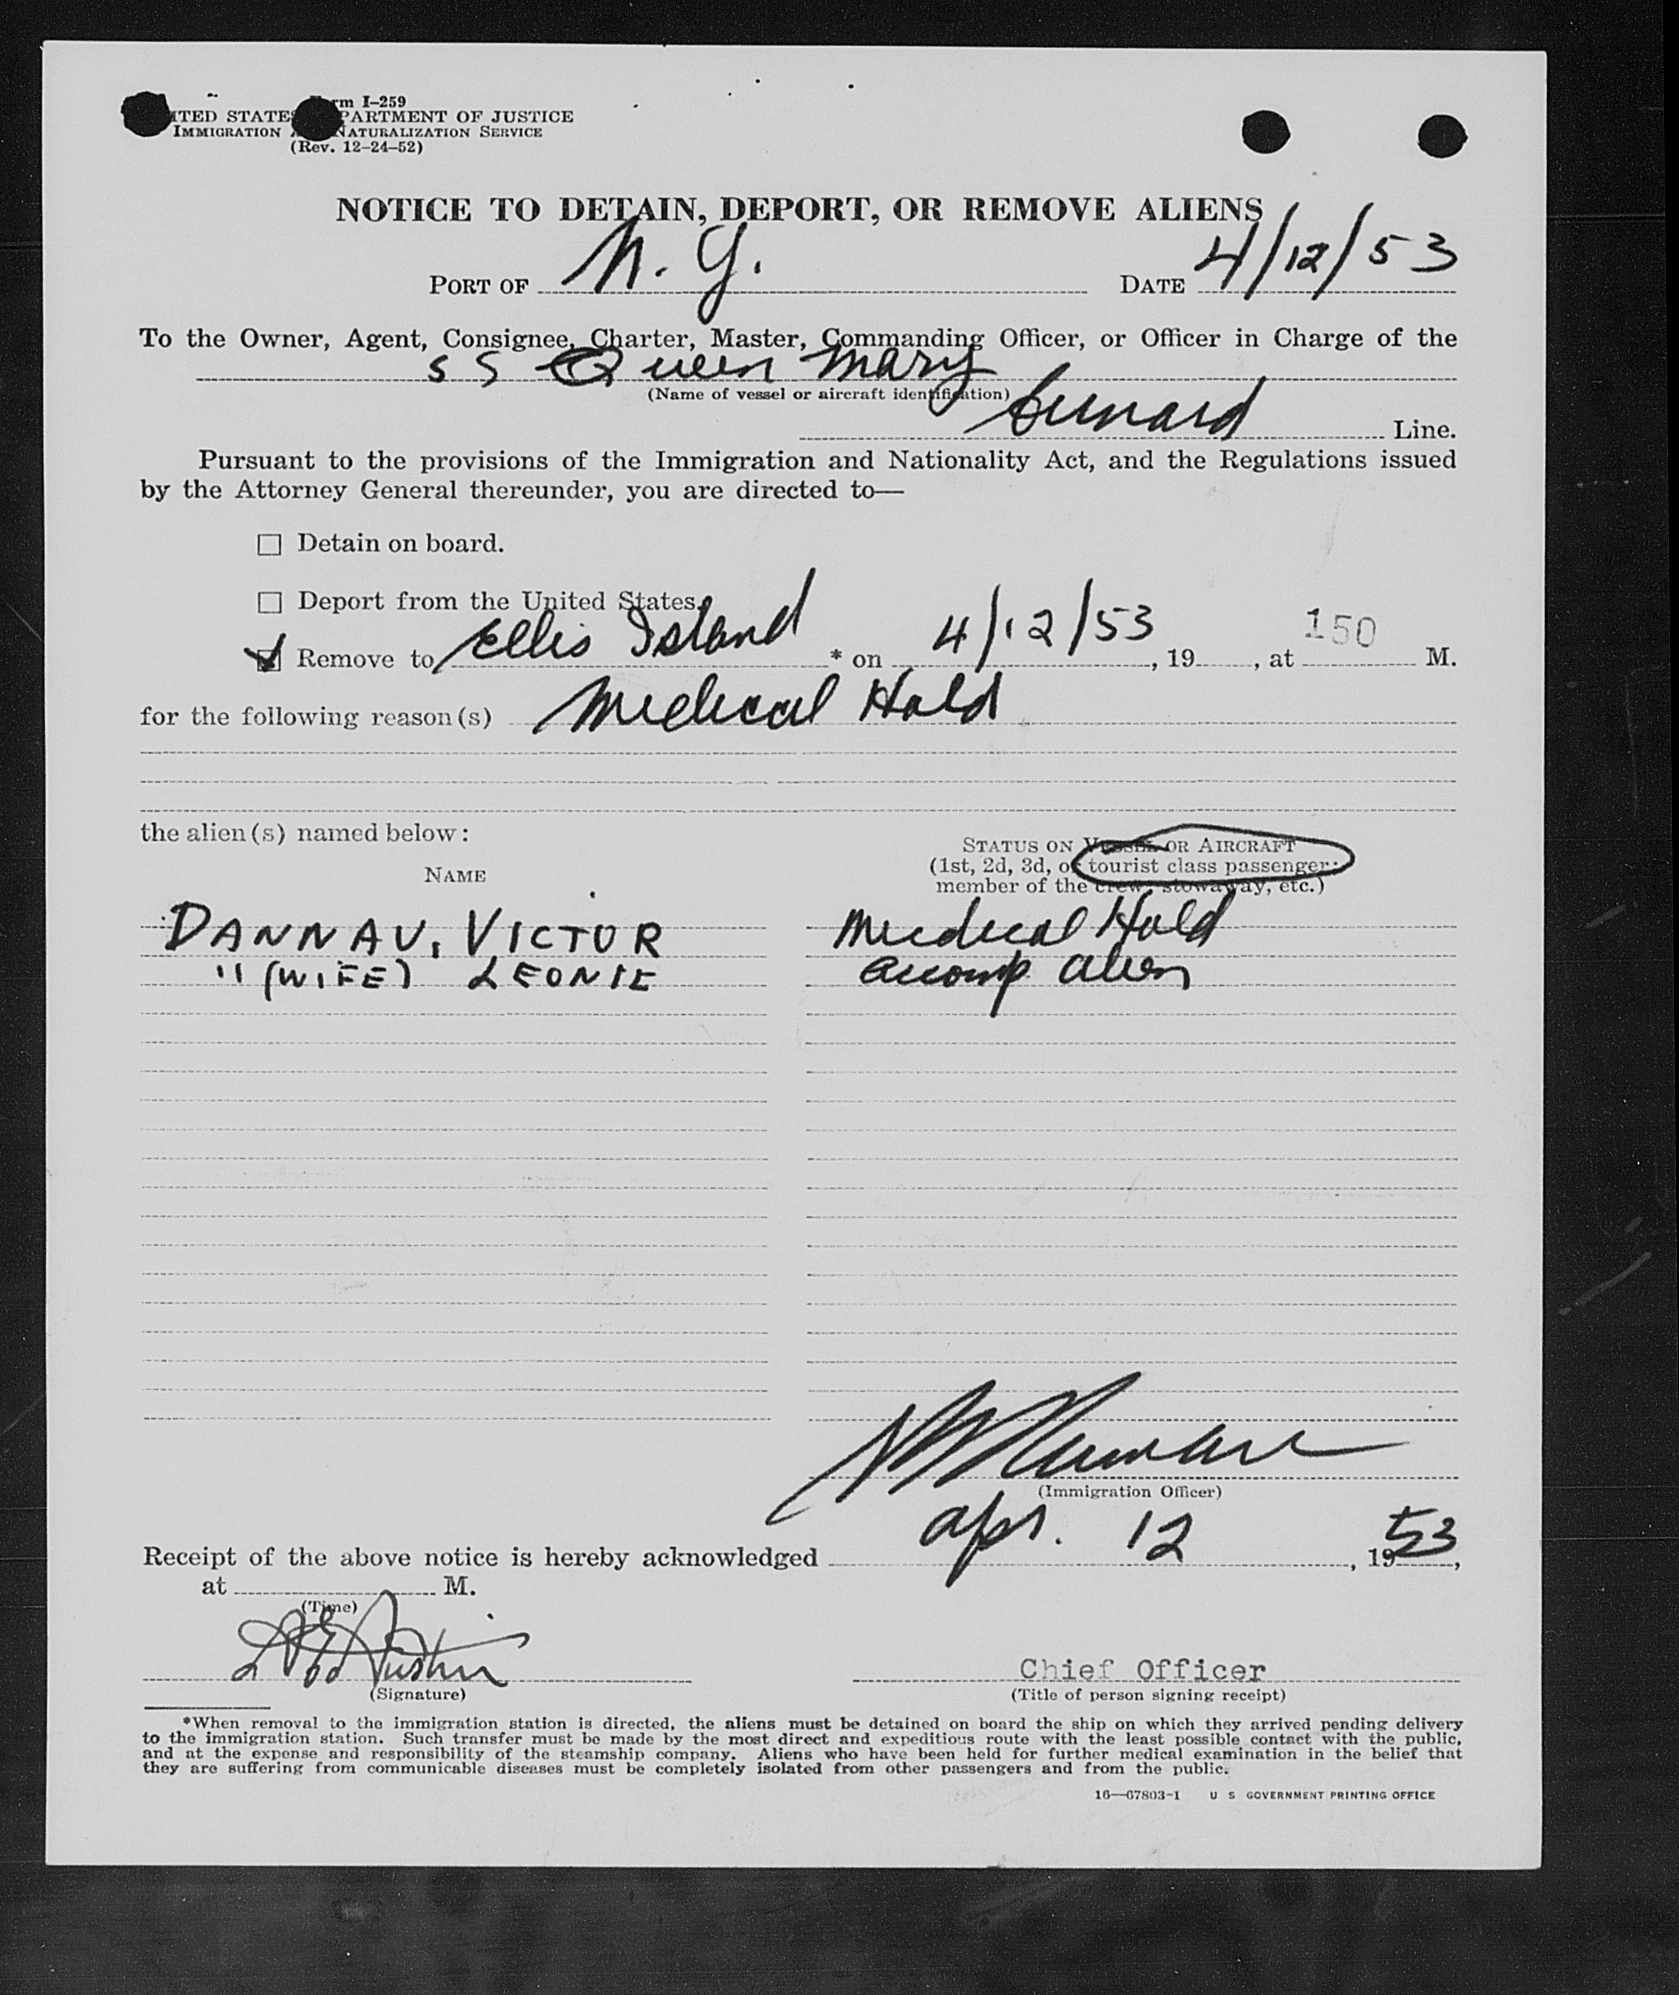 Form I-259
UNITED STATES DEPARTMENT OF JUSTICE
IMMIGRATION AND NATURALIZATION SERVICE
(Rev. 12-24-52)
NOTICE TO DETAIN, DEPORT, OR REMOVE ALIENS
PORT OF N. Y. DATE 4/12/53
To the Owner, Agent, Consignee, Charter, Master, Commanding Officer, or Officer in Charge of the
SS Queen Mary
(Name of vessel or aircraft identification)
Cunard Line.
Pursuant to the provisions of the Immigration and Nationality Act, and the Regulations issued
by the Attorney General thereunder, you are directed to—
Detain on board.
Deport from the United States.
Remove to Ellis Island * on 4/12/53, 19, at 150 M.
for the following reason(s) Medical Hold
the alien(s) named below:
STATUS ON VESSEL OR AIRCRAFT
NAME (1st, 2d, 3d, or tourist class passenger;
member of the crew, stowaway, etc.)
DANNAU, VICTOR Medical Hold
" (WIFE) LEONIE accomp alien
(Immigration Officer)
Receipt of the above notice is hereby acknowledged Apr. 12, 1953,
at M.
(Time)
Austin Chief Officer
(Signature) (Title of person signing receipt)
*When removal to the immigration station is directed, the aliens must be detained on board the ship on which they arrived pending delivery
to the immigration station. Such transfer must be made by the most direct and expeditious route with the least possible contact with the public,
and at the expense and responsibility of the steamship company. Aliens who have been held for further medical examination in the belief that
they are suffering from communicable diseases must be completely isolated from other passengers and from the public.
16—67803-1 U S GOVERNMENT PRINTING OFFICE